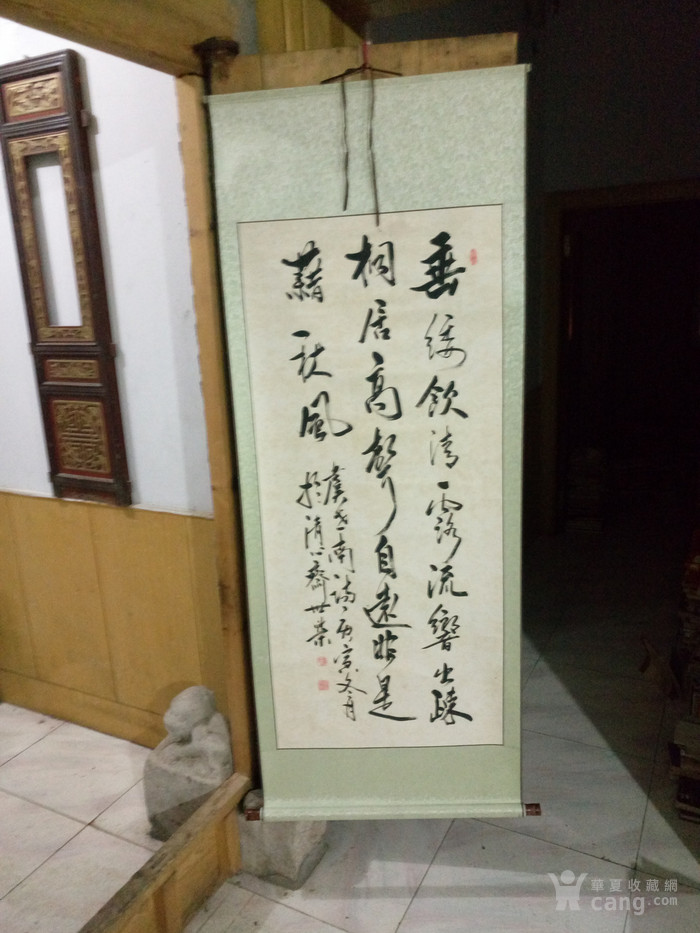 垂緌飲清露流響出疎
桐居高聲自遠非是
藉秋風
虞世南詩庚寅冬月
於清心齋世荣
華夏收藏網
cang.com